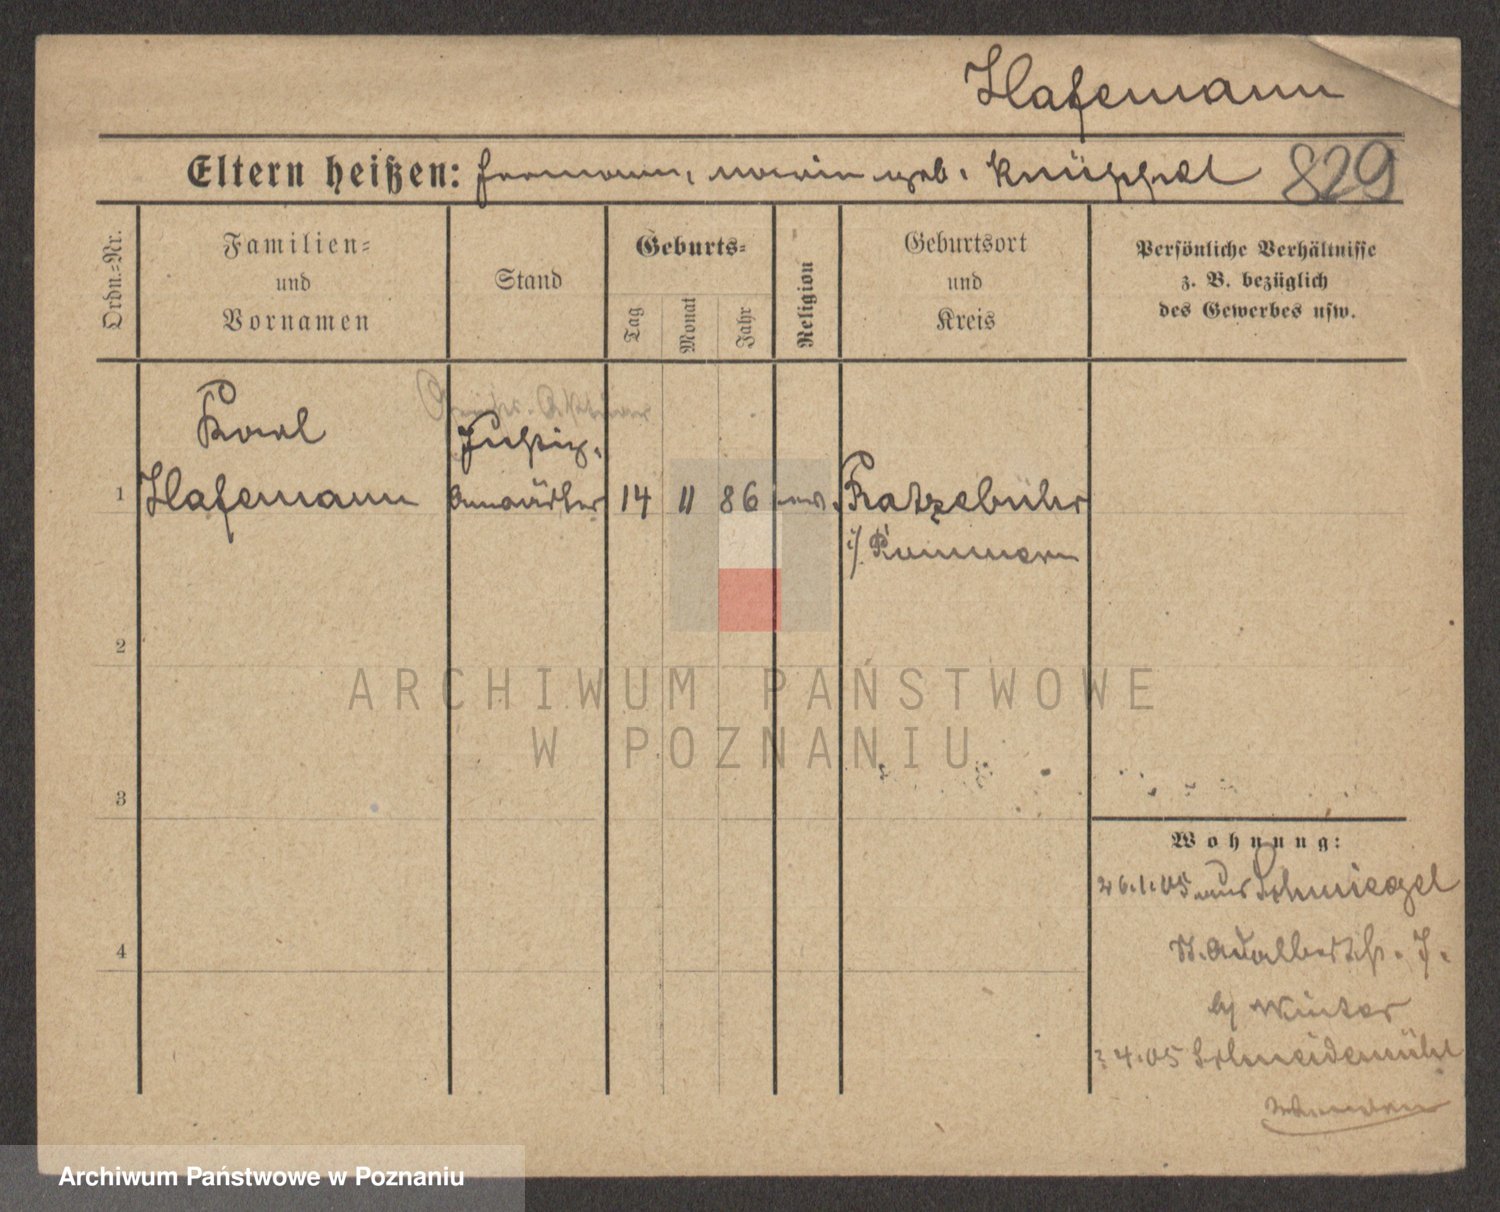 Hafemann
Eltern heißen: Hermann, Marie geb. Knüppel 829
Ordn.-Nr.
Familien-
und
Vornamen
Stand
Geburts-
Tag
Monat
Jahr
Religion
Geburtsort
und
Kreis
Persönliche Verhältnisse
z. B. bezüglich
des Gewerbes usw.
Karl
Justiz-
1 Hafemann Anwärter 14 11 86 ev. Ratzebuhr
i/ Pommern
2
3
4
Wohnung:
26.1.05 aus Schmiegel
St. Adalbertstr. 7.
b/ Winter
4.05 Schneidemühl
ARCHIWUM PAŃSTWOWE
W POZNANIU
Archiwum Państwowe w Poznaniu